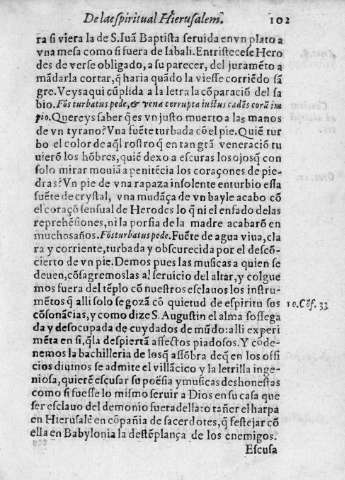 De la espiritual Hierusalem. 102
ra si viera la de S. Iuā Baptista seruida en vn plato a
vna mesa como si fuera de Iabali. Entristecese Hero
des de verse obligado, a su parecer, del juramēto a
mādarla cortar, q̄ haria quādo la viesse corriēdo sā
gre. Veys aqui cūplida a la letra la corrupciō del sa
bio. Fōs turbatus pede, & vena corrupta iustus cadēs corā im
pio. Quereys saber q̄ es vn justo muerto a las manos
de vn tyrano? Vna fuēte turbada cō el pie. Quiē tur
bo el color de aq̄l rostro q̄ en tan grā veneraciō tu
uierō los hōbres, quiē dexo a escuras los ojos q̄ con
solo mirar mouiā a penitēcia los coraçones de pie
dras? Vn pie de vna rapaza insolente enturbio essa
fuēte de crystal, vna mudāça de vn bayle acabo cō
el coraçō sensual de Herodes lo q̄ ni el enfado de las
reprehēsiones, ni la porfia de la madre acabarō en
muchos años. Fōs turbatus pede. Fuēte de agua viua, cla
ra y corriente, turbada y obscurecida por el descō-
cierto de vn pie. Demos pues las musicas a quien se
deuen, cōsagremoslas al seruicio del altar, y colgue
mos fuera del tēplo cō nuestros esclauos los instru-
mētos q̄ alli solo se gozā cō quietud de espiritu sus
cōsonācias, y como dize S. Augustin el alma sossega 10. Cōf. 33
da y desocupada de cuydados de mūdo: alli experi
mēta en si, q̄ la despiertā affectos piadosos. Y cōde-
nemos la bachilleria de los q̄ assōbra de q̄ en los offi
cios diuinos se admite el villācico y la letrilla inge-
niosa, quierē escusar su poësia y musicas deshonestas
como si fuesse lo mismo seruir a Dios en su casa que
ser esclauo del demonio fuera della: o tañer el harpa
en Hierusalē en cōpañia de sacerdotes, q̄ festejar cō
ella en Babylonia la destēplança de los enemigos.
Escusa